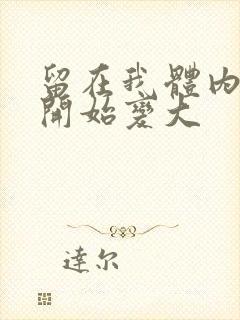 留在我體内
開始變大
達尔